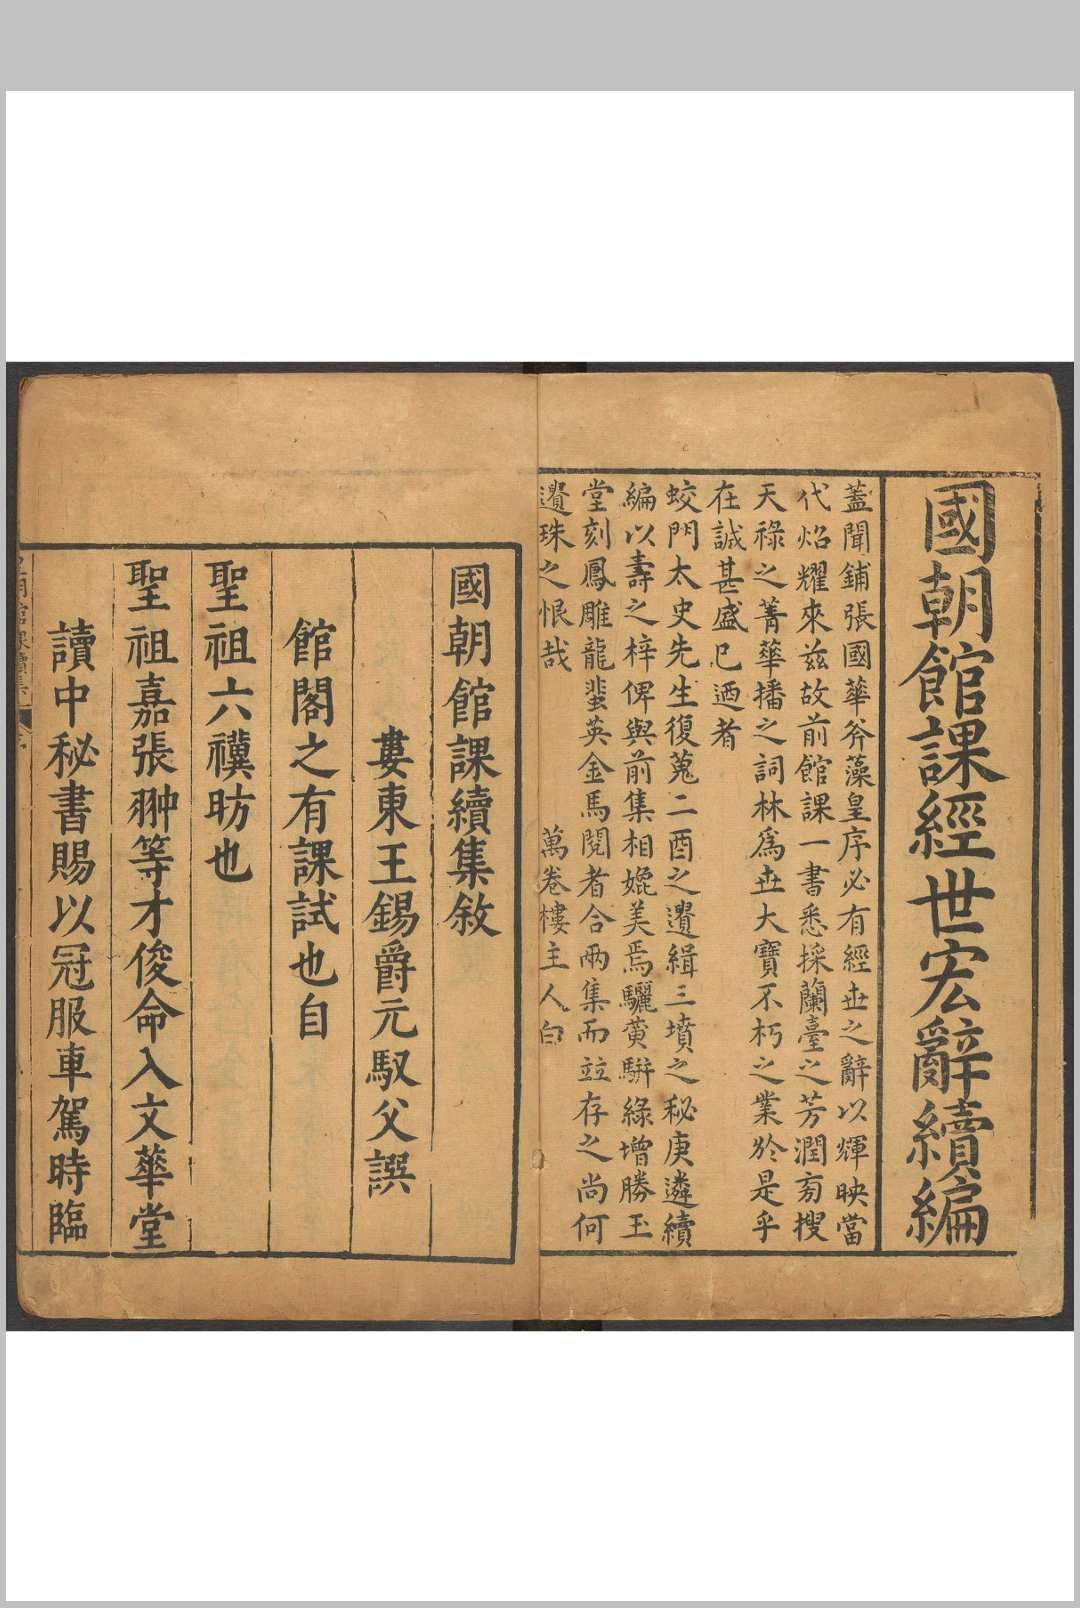 國朝館課經世宏辭續編
蓋聞鋪張國華斧藻皇序必有經世之辭以輝映當
代炤耀來茲故前館課一書悉採蘭臺之芳潤旁搜
天祿之菁華播之詞林為世大寶不朽之業於是乎
在誠甚盛已迺者
蛟門太史先生復蒐二酉之遺緝三墳之秘庚遴續
編以壽之梓俾與前集相媲美焉驪黃駢綠增勝玉
堂刻鳳雕龍蜚英金馬閱者合兩集而竝存之尚何
遺珠之恨哉 萬卷樓主人白
國朝館課續集敘
婁東王錫爵元馭父譔
館閣之有課試也自
聖祖六禩昉也
聖祖嘉張翀等才俊命入文華堂
讀中秘書賜以冠服車駕時臨